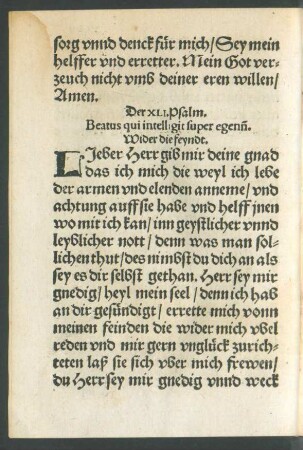 sorg vnnd denck für mich/Sey mein
helffer vnd erretter. Mein Got ver-
zeuch nicht vmb deiner eren willen/
Amen.
Der XLI. Psalm.
Beatus qui intelligit super egenū.
Wider die feyndt.
LJeber Herr gib mir deine gnad
das ich mich die weyl ich lebe
der armen vnd elenden anneme/vnd
achtung auff sie habe vnd helff jnen
wo mit ich kan/inn geystlicher vnnd
leyblicher nott/denn was man sol-
lichen thut/des nimbst du dich an als
sey es dir selbst gethan. Herr sey mir
gnedig/heyl mein seel/denn ich hab
an dir gesündigt/errette mich vonn
meinen feinden die wider mich vbel
reden vnd mir gern vnglück zurich-
teten laß sie sich vber mich frewen/
du Herr sey mir gnedig vnnd weck